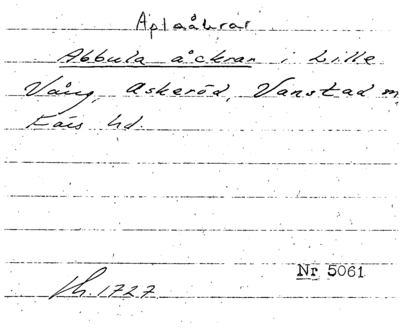 Aplaåkrar
Abbula åckrar i Lille
Vång, Askeröd, Vanstad m.
Färs hd.
Nr 5061
Lh. 1727